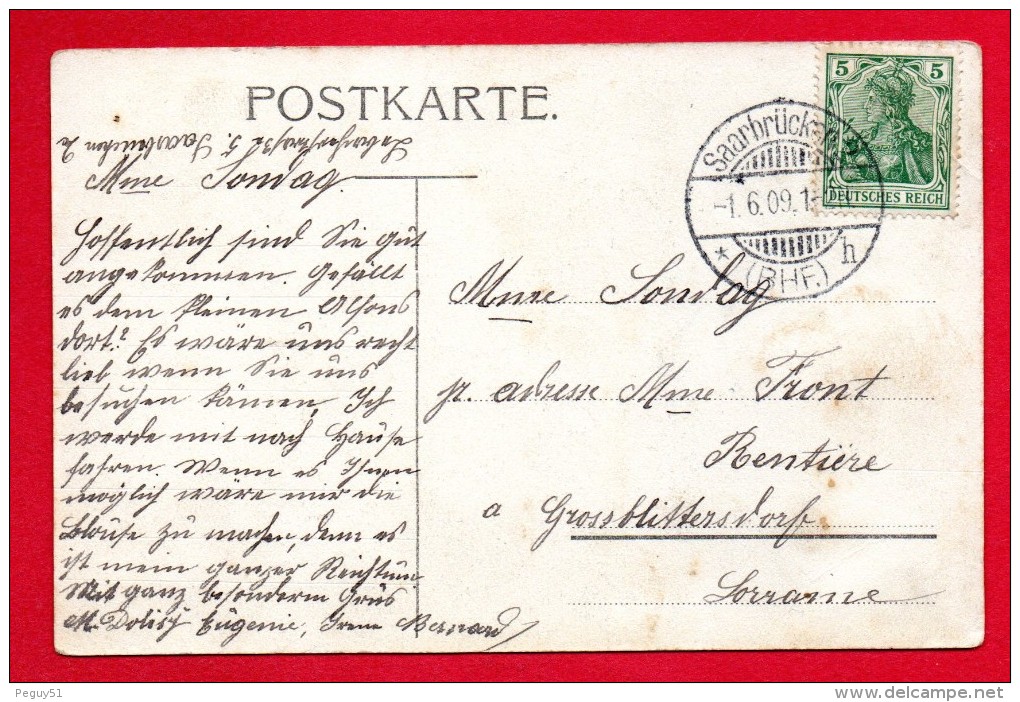 POSTKARTE.
5 5
DEUTSCHES REICH
Saarbrücken
-1.6.09.1
* (BHF.) h
Saarbrücken 2
Mme Sondag.
Hoffentlich sind Sie gut
angekommen. Gefällt
es dem kleinen Alfons
dort? Es wäre uns recht
lieb wenn Sie uns
besuchen kämen, Ich
werde mit nach Hause
fahren. Wenn es Ihnen
möglich wäre mir die
Blouse zu machen, denn es
ist mein ganzer Reichtum
Mit ganz besonderm Grüs
M. Dolisy Eugenie, Irene Bernard
Mme Sondag
pr. adresse Mme Front
Rentière
a Grossblittersdorf
Lorraine
Peguy51
www.delcampe.net